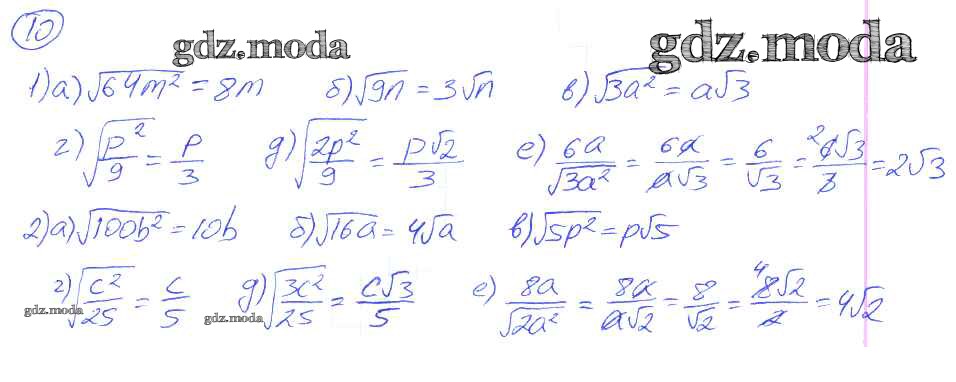 10
gdz.moda gdz.moda
1) а) √64m² = 8m б) √9n = 3√n в) √3a² = a√3
г) √(p²/9) = p/3 д) √(2p²/9) = p√2/3 е) 6a/√3a² = 6a/a√3 = 6/√3 = ²6√3/3 = 2√3
2) а) √100b² = 10b б) √16a = 4√a в) √5p² = p√5
г) √(c²/25) = c/5 д) √(3c²/25) = c√3/5 е) 8a/√2a² = 8a/a√2 = 8/√2 = ⁴8√2/2 = 4√2
gdz.moda gdz.moda